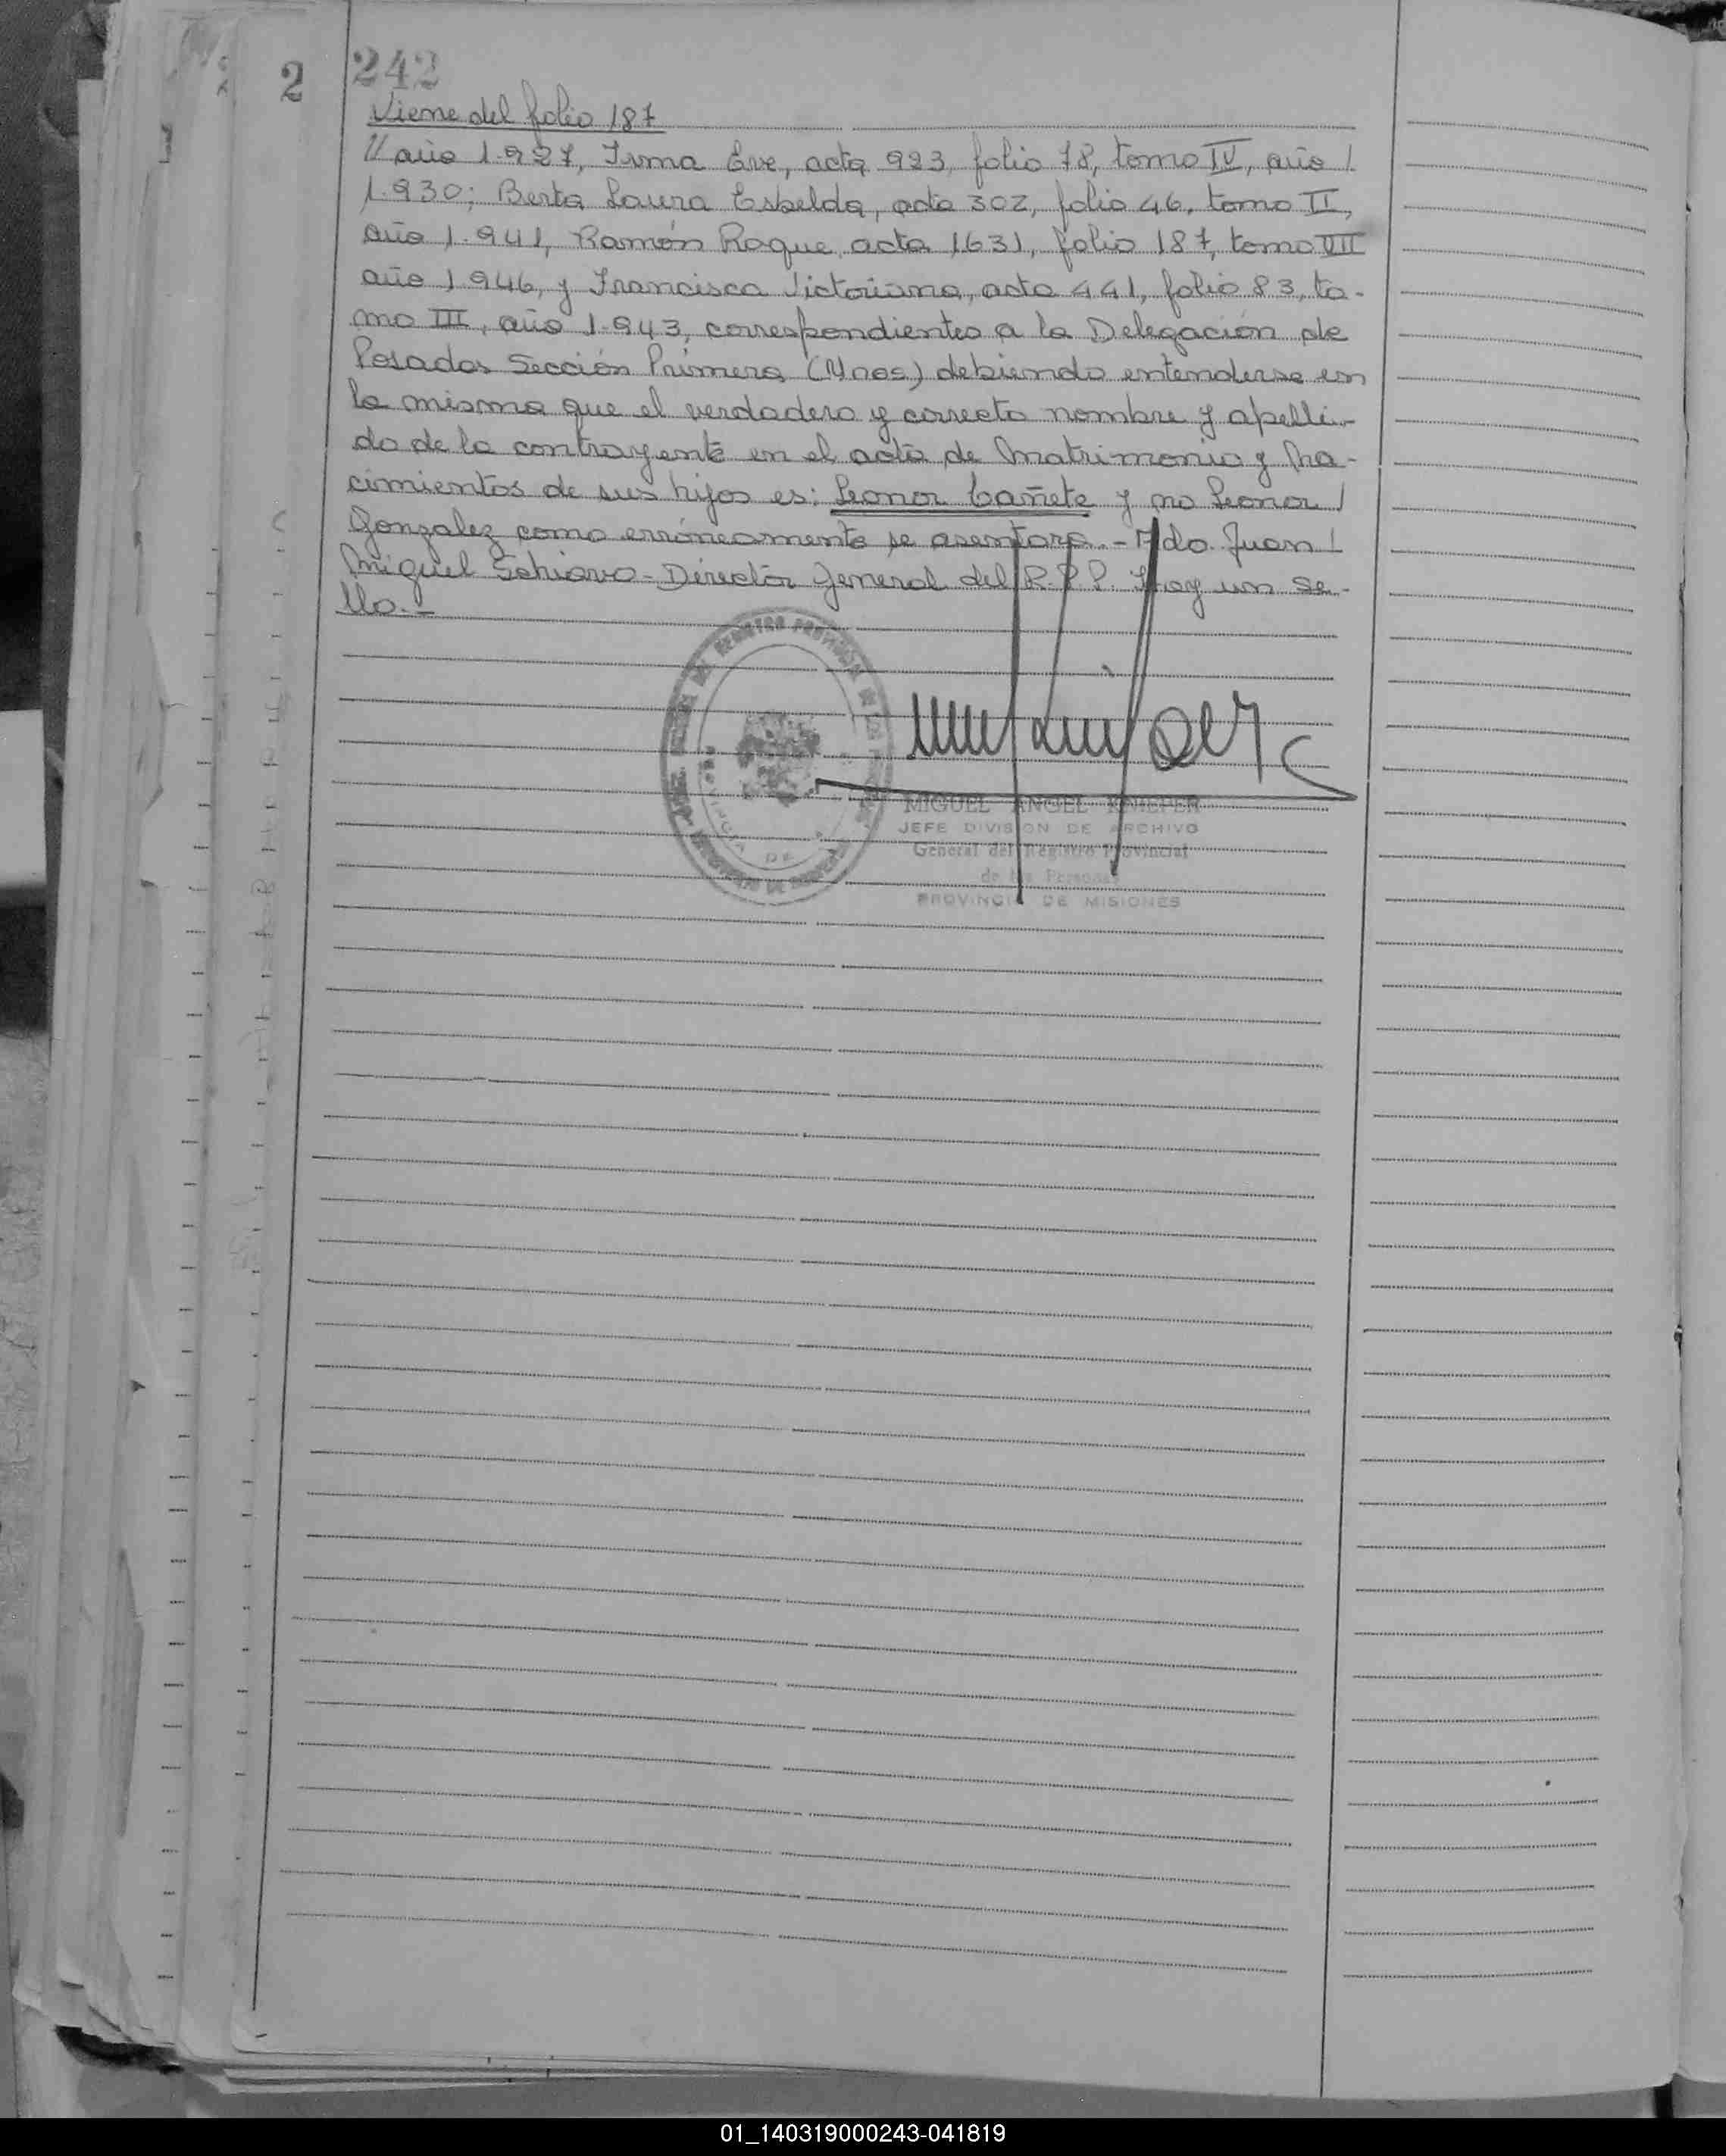 2 242
Viene del folio 187
// año 1.927, Irma Eve, acta 923, folio 78, tomo IV, año /
1.930; Berta Laura Esbelda, acta 302, folio 46, tomo II,
año 1.941, Ramón Roque, acta 1631, folio 187, tomo VII
año 1.946, y Francisca Victoriana, acta 441, folio 83, to-
mo III, año 1.943, correspondientes a la Delegación de
Posadas Sección Primera (Mnes) debiendo entenderse en
la misma que el verdadero y correcto nombre y apelli-
do de la contrayente en el acta de Matrimonio y Na-
cimientos de sus hijos es: Leonor Cañete y no Leonor /
Gonzalez como erróneamente se asentara.- Fdo. Juan /
Miguel Schiavo - Director General del R.P.P. Hay un se-
llo.-
MIGUEL ANGEL
JEFE DIVISION DE ARCHIVO
General del Registro Provincial
de las Personas
PROVINCIA DE MISIONES
PROVINCIA DE
01_140319000243-041819